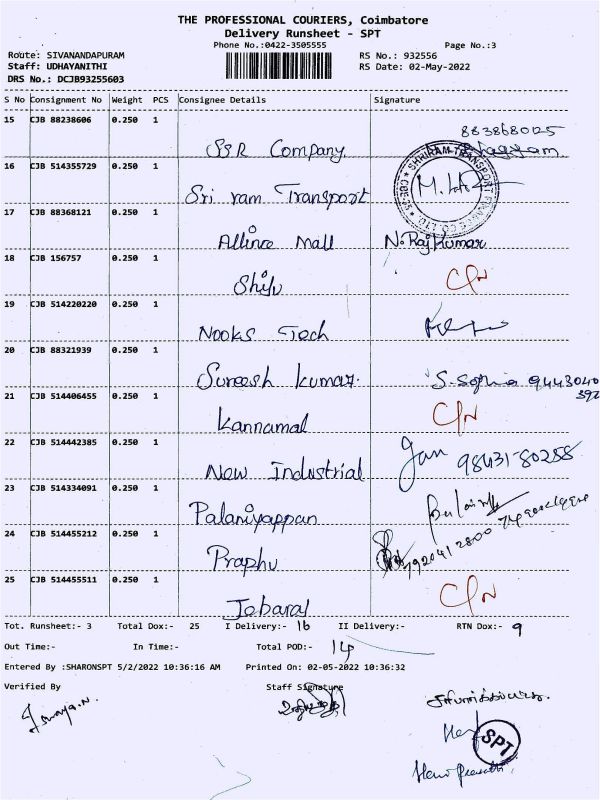 THE PROFESSIONAL COURIERS, Coimbatore
Delivery Runsheet - SPT
Phone No.:0422-3505555 Page No.:3
Route: SIVANANDAPURAM RS No.: 932556
Staff: UDHAYANITHI RS Date: 02-May-2022
DRS No.: DCJB93255603
S No Consignment No Weight PCS Consignee Details Signature
15 CJB 88238606 0.250 1
SSR Company
16 CJB 514355729 0.250 1
Sri ram Transport
SHRIRAM TRANSPORT FINANCE CO. LTD. CBE-25
17 CJB 88368121 0.250 1
Allince Mall N. Rajkumar
18 CJB 156757 0.250 1
Shifu C/N
19 CJB 514220220 0.250 1
Nooks Tech
20 CJB 88321939 0.250 1
Sureesh kumar. S. Sophia 9443040
392
21 CJB 514406455 0.250 1
Kannamal C/N
22 CJB 514442385 0.250 1
New Industrial 98431-80288
23 CJB 514334091 0.250 1
Palaniyappan
24 CJB 514455212 0.250 1
Praphu
25 CJB 514455511 0.250 1
Jebaraj C/N
Tot. Runsheet:- 3 Total Dox:- 25 I Delivery:- 16 II Delivery:- RTN Dox:- 9
Out Time:- In Time:- Total POD:- 14
Entered By :SHARONSPT 5/2/2022 10:36:16 AM Printed On: 02-05-2022 10:36:32
Verified By Staff Signature
SPT